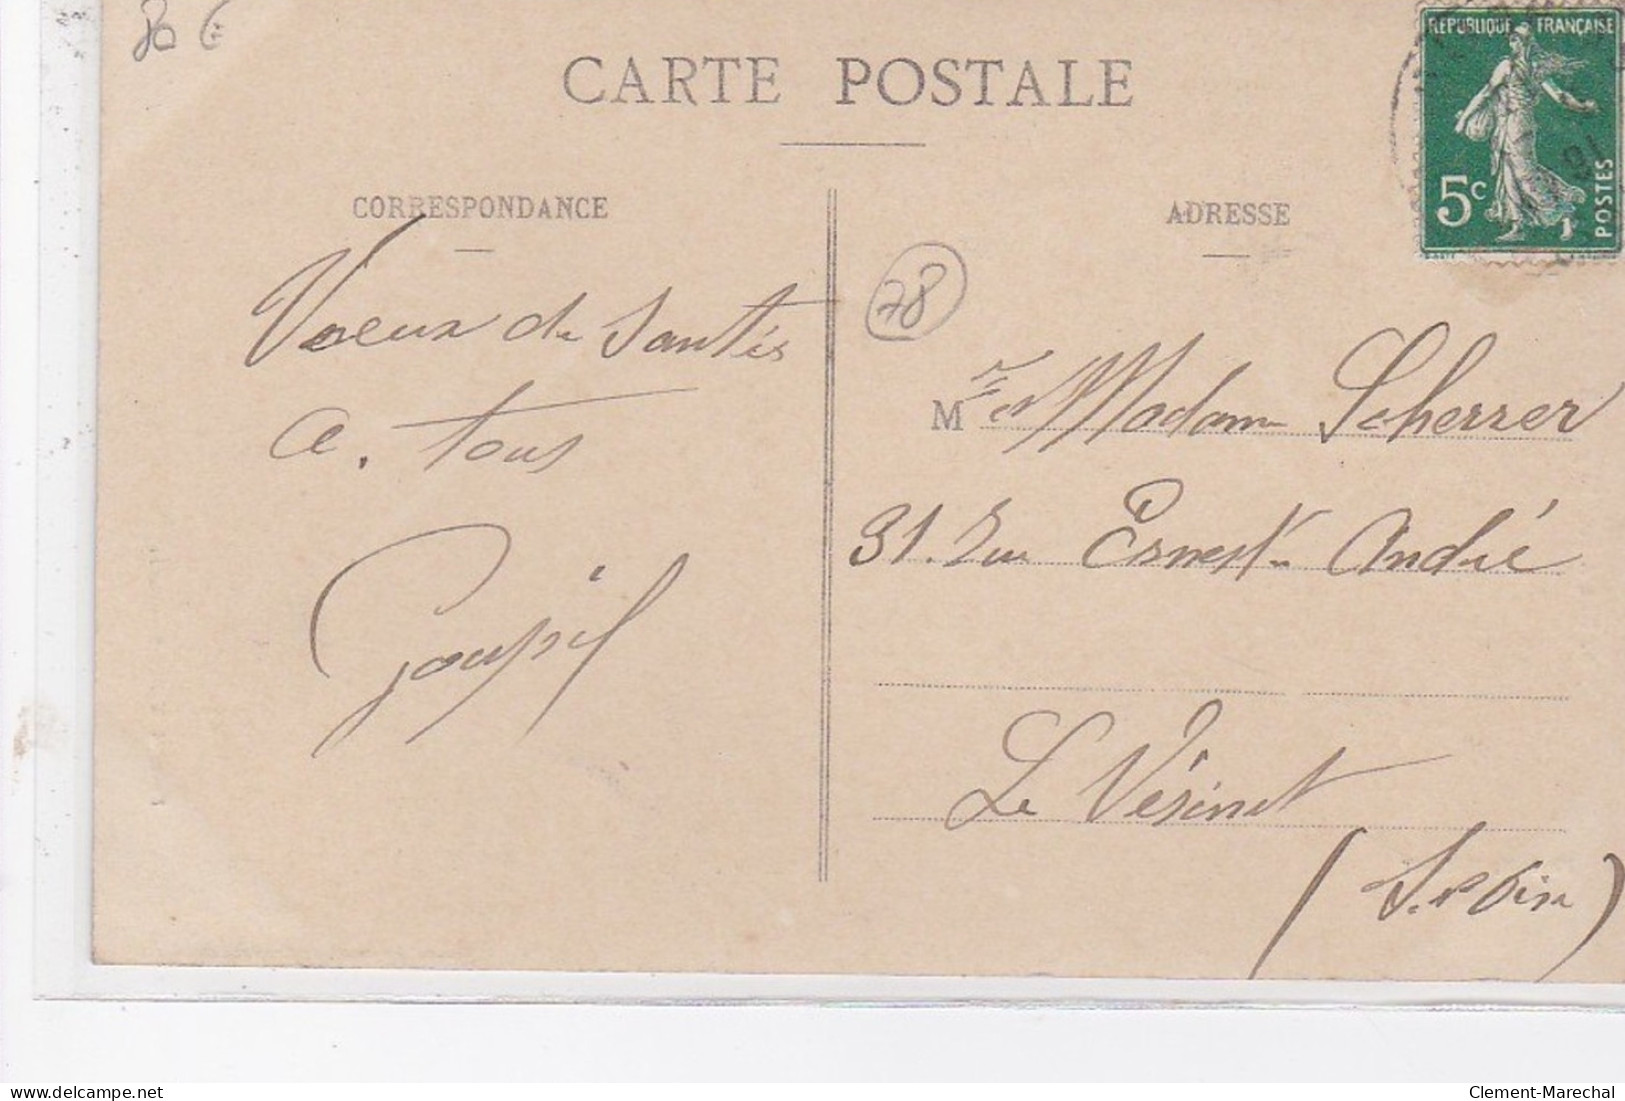 80 €
CARTE POSTALE
REPUBLIQUE FRANÇAISE
5c
POSTES
CORRESPONDANCE
ADRESSE
78
Voeux de Santés
a. tous
Goupil
Mr et Madame Scherrer
31. Rue Ernest André
Le Vésinet
(S. et Oise)
delcampe.net
Clement-Marechal